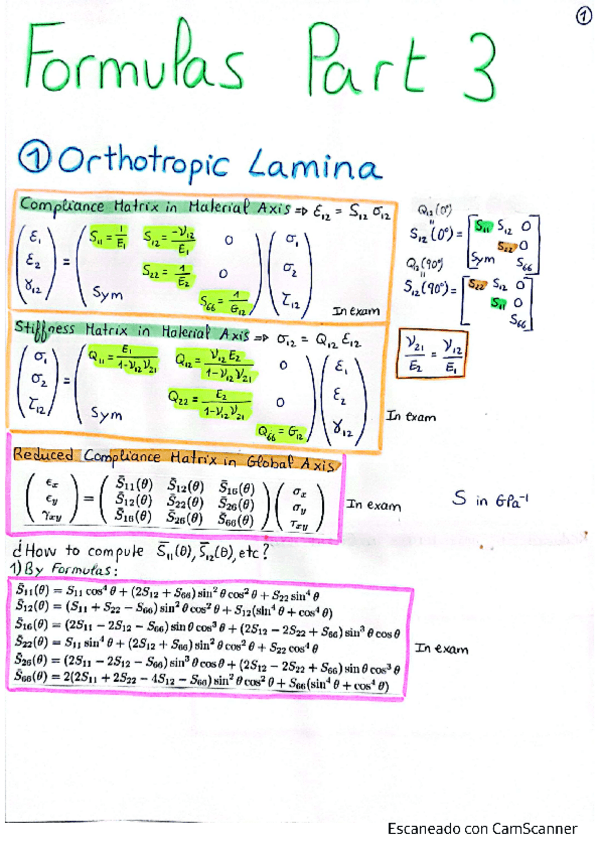 ①
Formulas Part 3
① Orthotropic Lamina
Compliance Matrix in Material Axis => ε₁₂ = S₁₂ σ₁₂
(ε₁ ε₂ γ₁₂) = (S₁₁ = 1/E₁ S₁₂ = -ν₁₂/E₁ 0
S₂₂ = 1/E₂ 0
Sym S₆₆ = 1/G₁₂) (σ₁ σ₂ τ₁₂)
In exam
Q₁₂(0°)
=
S₁₂(0°) = [S₁₁ S₁₂ 0
S₂₂ 0
Sym S₆₆]
Q₁₂(90°)
=
S₁₂(90°) = [S₂₂ S₁₂ 0
S₁₁ 0
S₆₆]
Stiffness Matrix in Material Axis => σ₁₂ = Q₁₂ ε₁₂
(σ₁ σ₂ τ₁₂) = (Q₁₁ = E₁/1-ν₁₂ν₂₁ Q₁₂ = ν₁₂E₂/1-ν₁₂ν₂₁ 0
Q₂₂ = E₂/1-ν₁₂ν₂₁ 0
Sym Q₆₆ = G₁₂) (ε₁ ε₂ γ₁₂)
In exam
ν₂₁/E₂ = ν₁₂/E₁
Reduced Compliance Matrix in Global Axis
(ϵx ϵy γxy) = (S̄₁₁(θ) S̄₁₂(θ) S̄₁₆(θ)
S̄₁₂(θ) S̄₂₂(θ) S̄₂₆(θ)
S̄₁₆(θ) S̄₂₆(θ) S̄₆₆(θ)) (σx σy τxy)
In exam
S in GPa⁻¹
¿How to compute S̄₁₁(θ), S̄₁₂(θ), etc?
1) By Formulas:
S̄₁₁(θ) = S₁₁ cos⁴ θ + (2S₁₂ + S₆₆) sin² θ cos² θ + S₂₂ sin⁴ θ
S̄₁₂(θ) = (S₁₁ + S₂₂ − S₆₆) sin² θ cos² θ + S₁₂(sin⁴ θ + cos⁴ θ)
S̄₁₆(θ) = (2S₁₁ − 2S₁₂ − S₆₆) sin θ cos³ θ + (2S₁₂ − 2S₂₂ + S₆₆) sin³ θ cos θ
S̄₂₂(θ) = S₁₁ sin⁴ θ + (2S₁₂ + S₆₆) sin² θ cos² θ + S₂₂ cos⁴ θ
S̄₂₆(θ) = (2S₁₁ − 2S₁₂ − S₆₆) sin³ θ cos θ + (2S₁₂ − 2S₂₂ + S₆₆) sin θ cos³ θ
S̄₆₆(θ) = 2(2S₁₁ + 2S₂₂ − 4S₁₂ − S₆₆) sin² θ cos² θ + S₆₆(sin⁴ θ + cos⁴ θ)
In exam
Escaneado con CamScanner